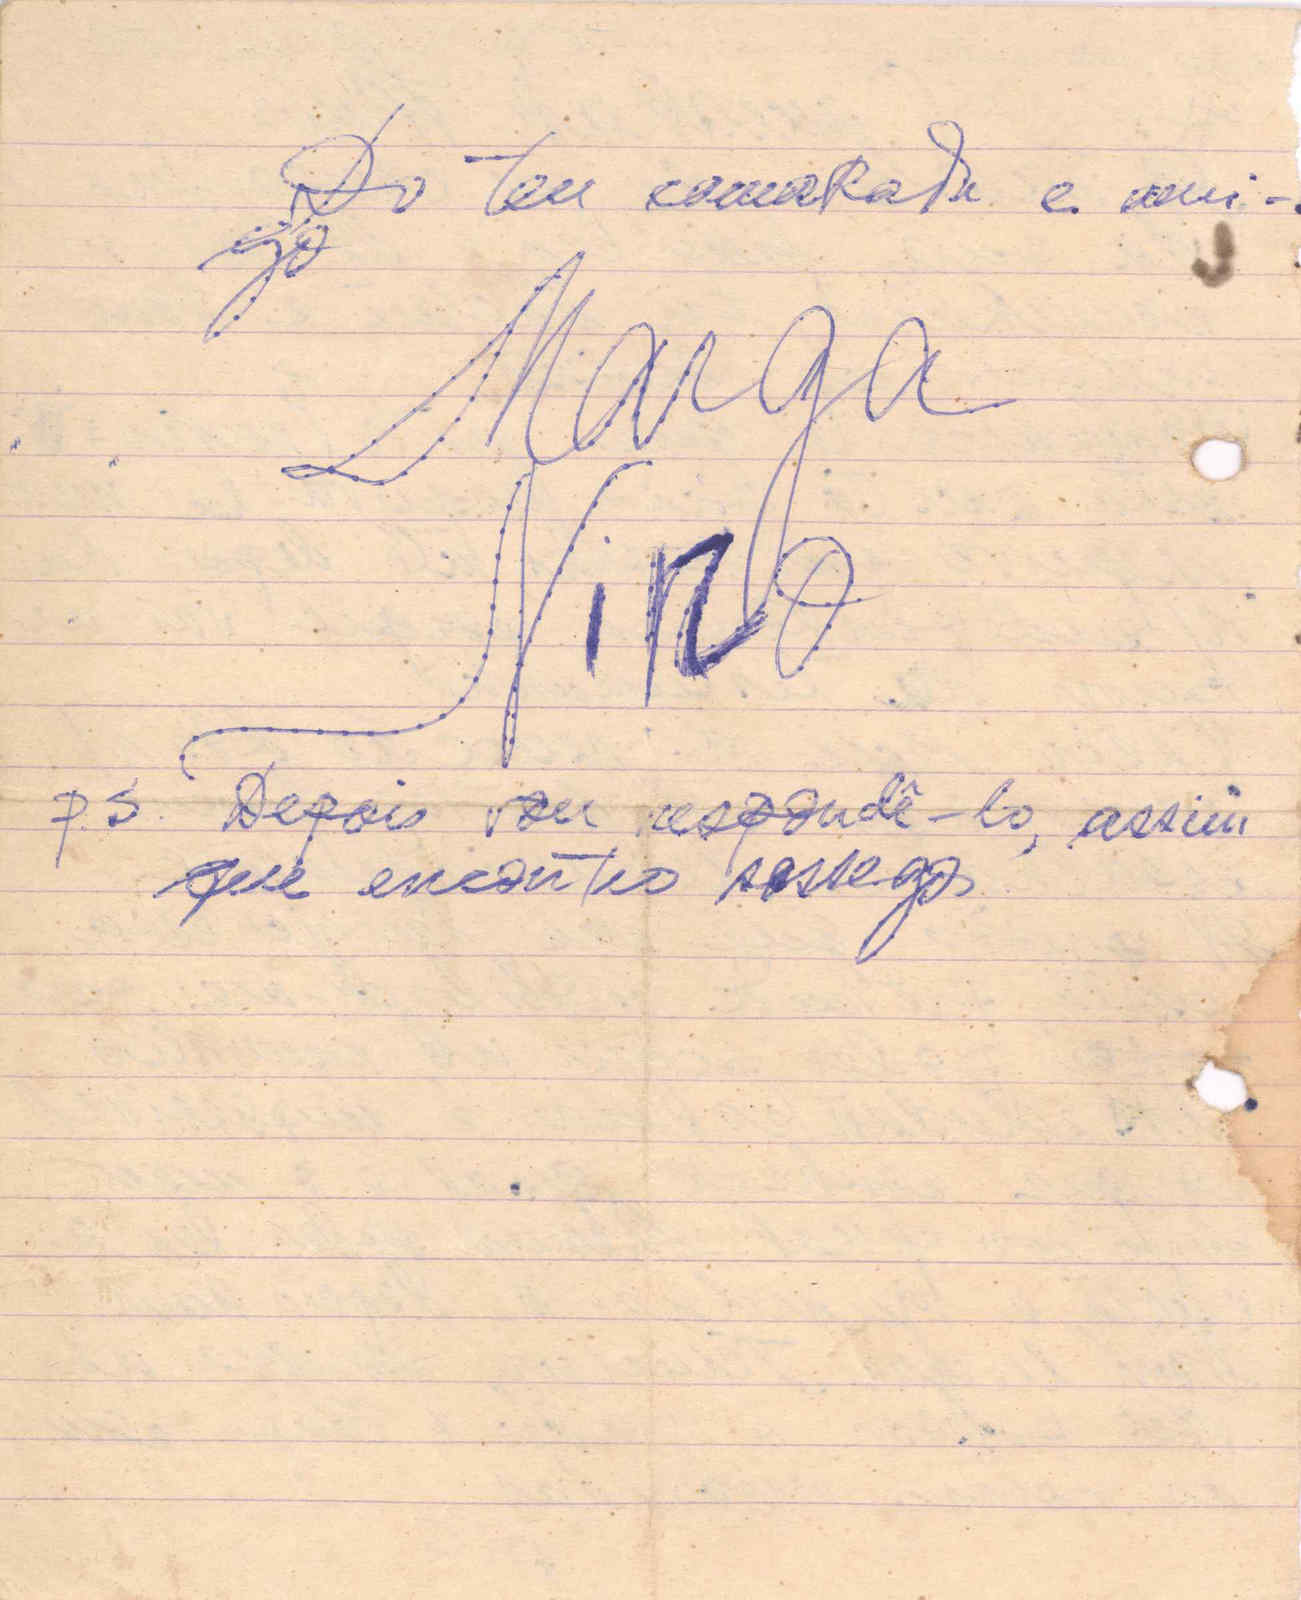 Do teu camarada e ami-
go
Marga
Nino
P.S. Depois vou respondê-lo, assim
que encontro sossego